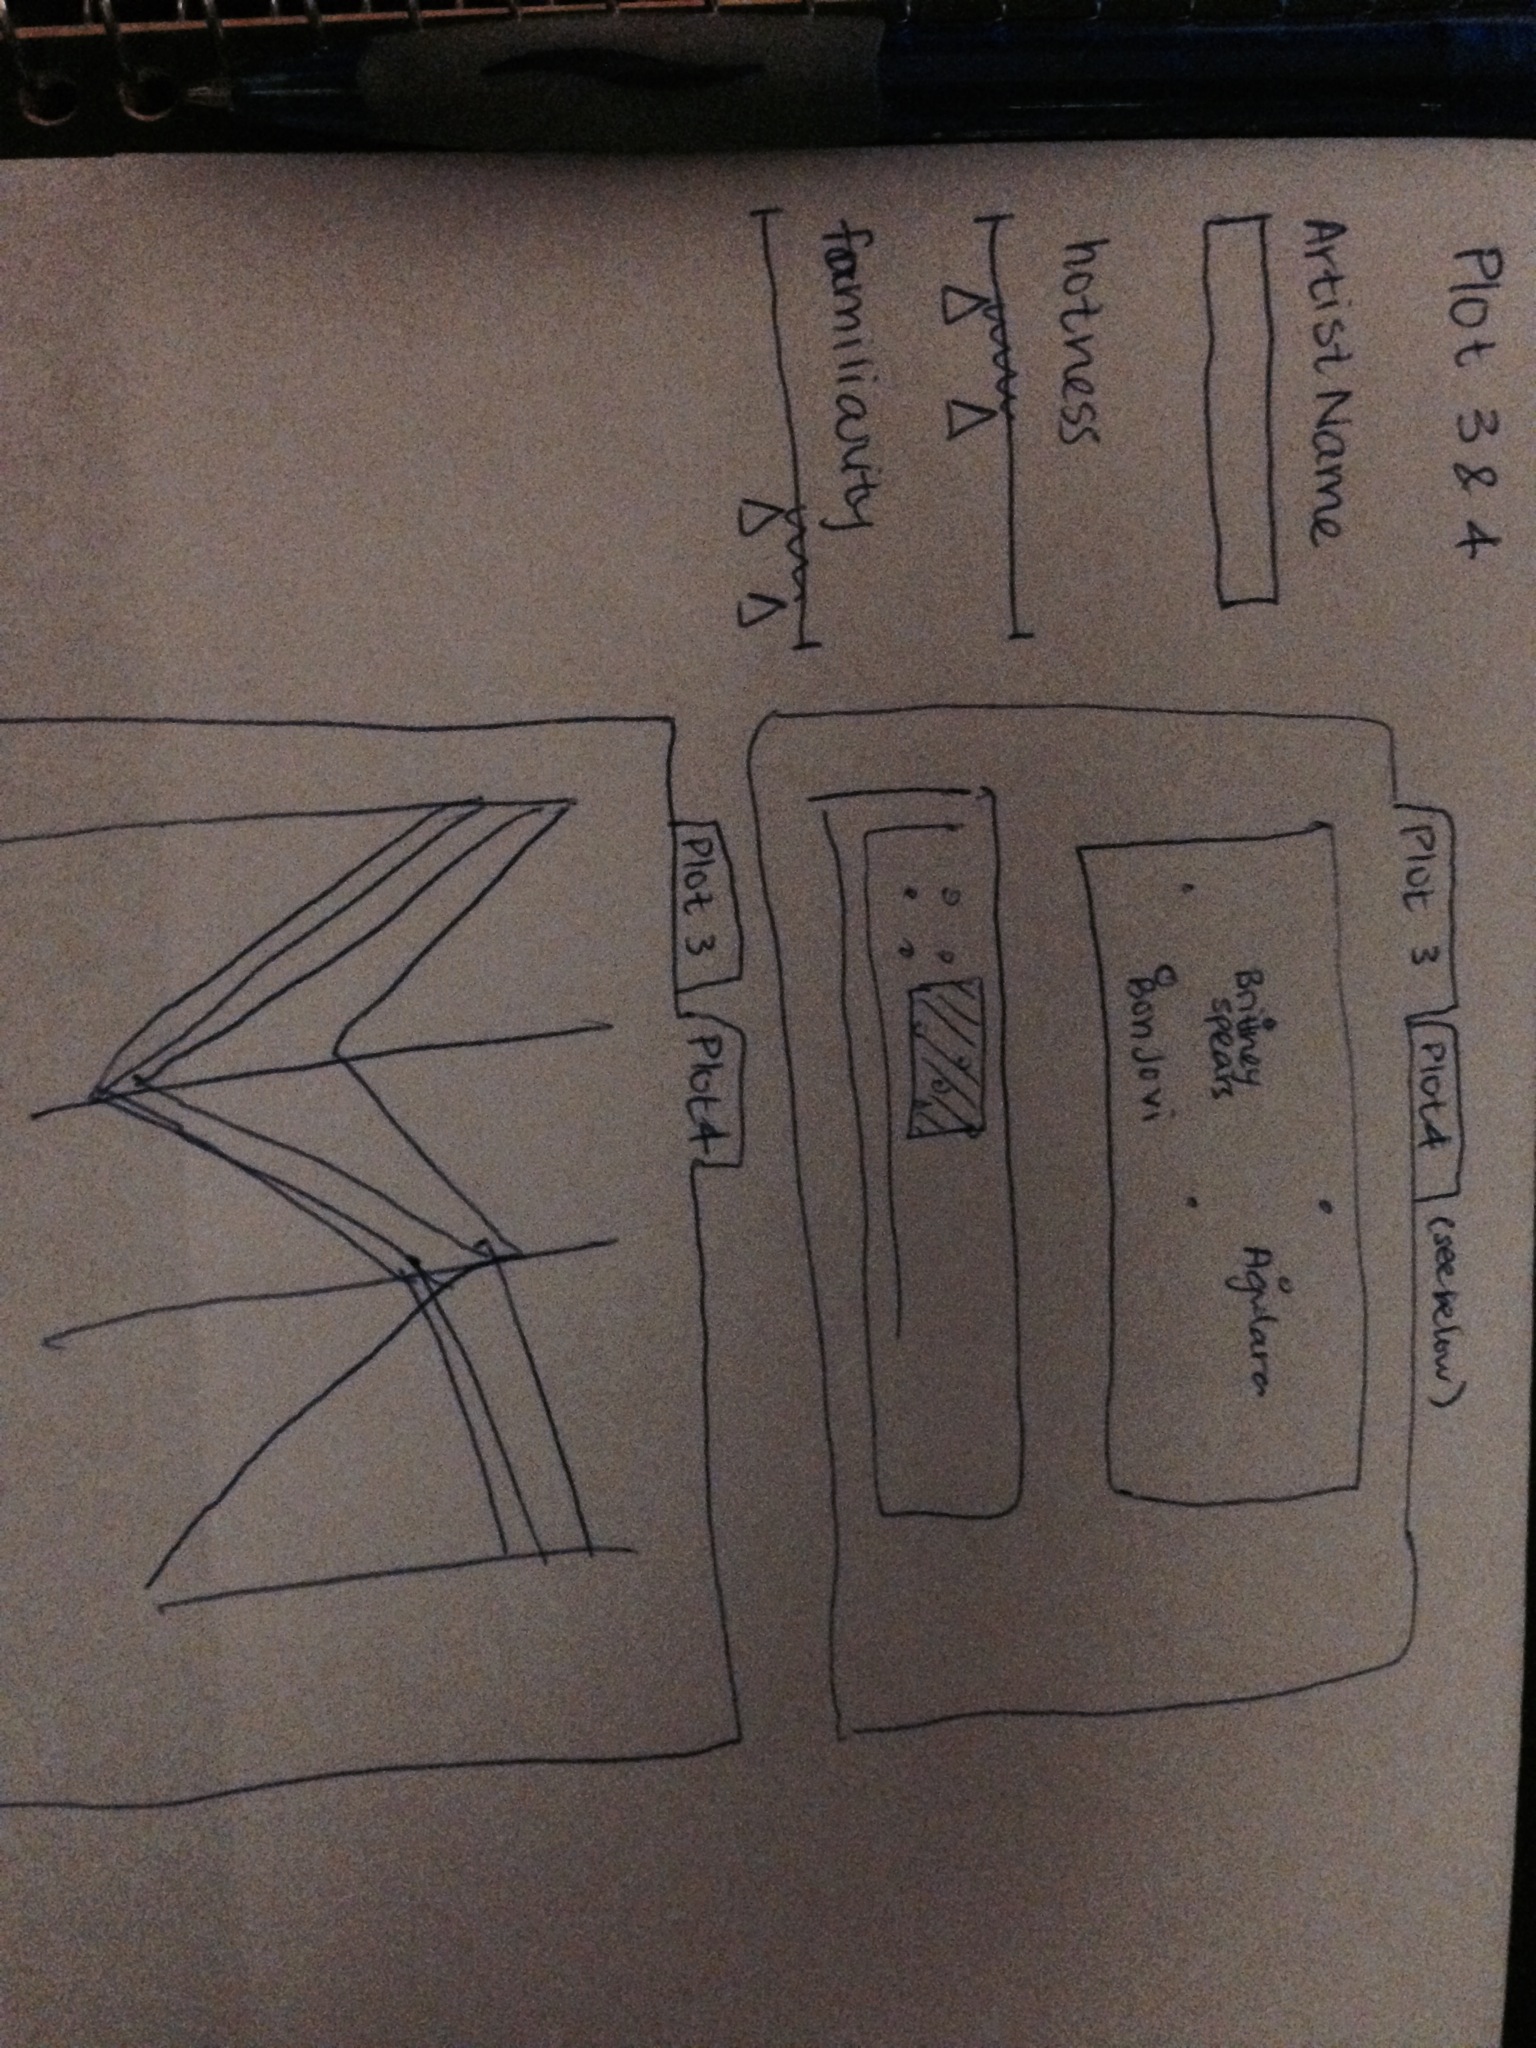 Plot 3 & 4
Artist Name
hotness
familiarity
Plot 3
Plot4
(see below)
Britney
spears
BonJovi
Aguilara
Plot 3
Plot4